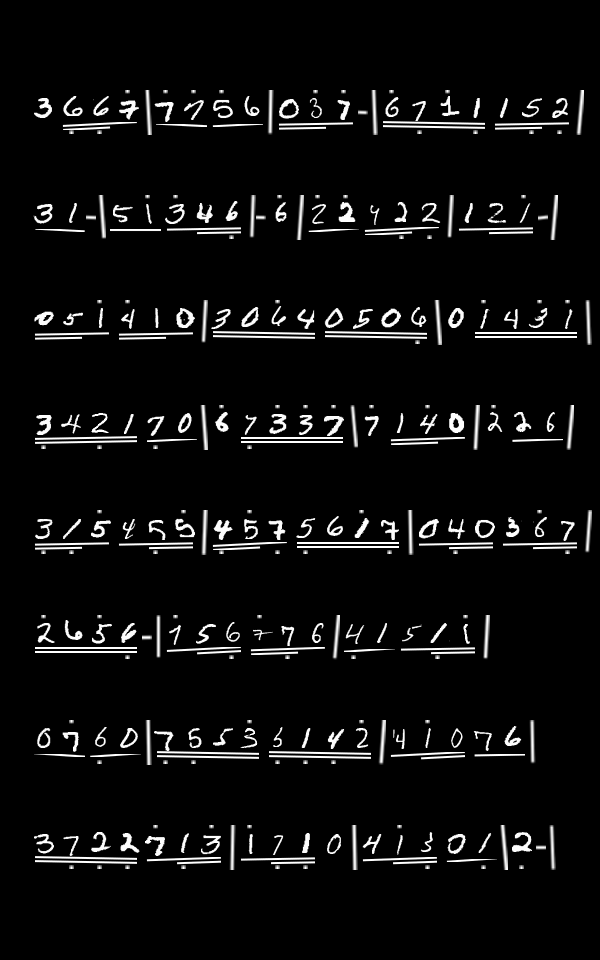 3667|7756|037-|6711 152|
31-|51346|-6|22422|121-|
051 410|30640506|01431|
342170|67337|7140|226|
315455|457 5617|040367|
2656-|156776|41511|
0760|7553 5142|41076|
3722713|1710|41301|2-|